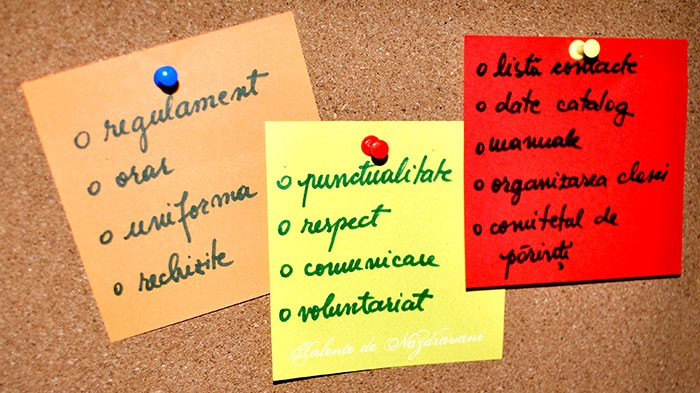 o regulament
o orar
o uniforma
o rechizite
o punctualitate
o respect
o comunicare
o voluntariat
Talente de Nazdravani
o listă contacte
o date catalog
o manuale
o organizarea clasei
o comitetul de
părinți